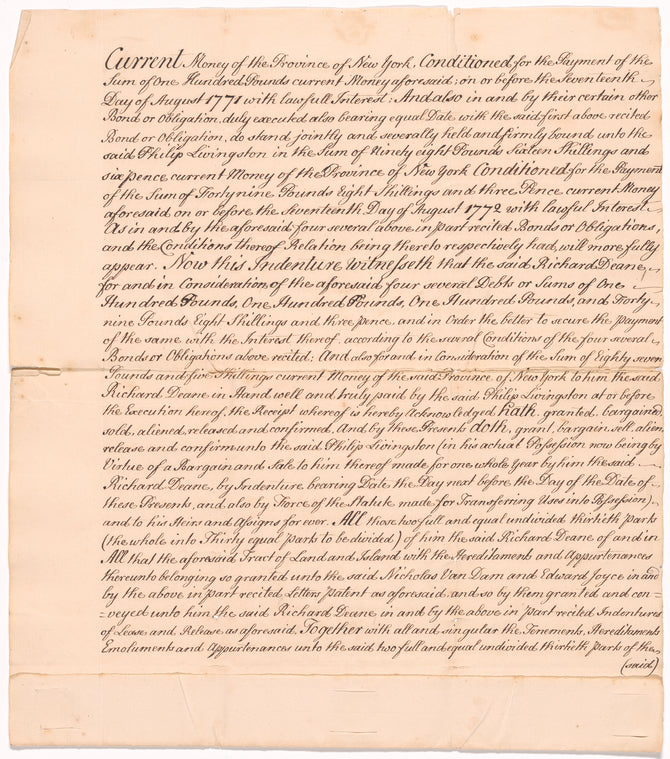 Current Money of the Province of New York, Conditioned for the Payment of the
Sum of One Hundred Pounds current Money aforesaid; on or before the Seventeenth
Day of August 1771 with lawfull Interest; And also in and by their certain other
Bond or Obligation, duly executed also bearing equal Date with the said first above recited
Bond or Obligation, do stand jointly and severally held and firmly bound unto the
said Philip Livingston in the Sum of Ninety eight Pounds Sixteen Shillings and
six pence current Money of the Province of New York Conditioned for the Payment
of the Sum of Forty nine Pounds Eight Shillings and three Pence current Money
aforesaid on or before the Seventeenth Day of August 1772 with lawful Interest
As in and by the aforesaid four several above in part recited Bonds or Obligations,
and the Conditions thereof Relation being thereto respectively had, will more fully
appear. Now this Indenture witnesseth that the said Richard Deane,
for and in Consideration of the aforesaid four several Debts or Sums of One
Hundred Pounds, One Hundred Pounds, One Hundred Pounds, and Forty-
nine Pounds Eight Shillings and three pence, and in Order the better to secure the payment
of the same with the Interest thereof, according to the several Conditions of the four several
Bonds or Obligations above recited; And also for and in Consideration of the Sum of Eighty seven
Pounds and five Shillings current Money of the said Province of New York to him the said
Richard Deane in Hand well and truly paid by the said Philip Livingston at or before
the Execution hereof, the Receipt whereof is hereby Acknowledged, hath, granted, bargained,
sold, aliened, released and confirmed, And by these Presents doth, grant, bargain, sell, alien,
release and confirm unto the said Philip Livingston (in his actual Possession now being by
Virtue of a Bargain and Sale to him thereof made for one whole Year by him the said
Richard Deane, by Indenture bearing Date the Day next before the Day of the Date of
these Presents, and also by Force of the Statute made for Transferring Uses into Possession)
and to his Heirs and Assigns for ever. All those two full and equal undivided thirtieth parts
(the whole into Thirty equal parts to be divided) of him the said Richard Deane of and in
All that the aforesaid Tract of Land and Island with the Hereditaments and Appurtenances
thereunto belonging so granted unto the said Nicholas Van Dam and Edward Joyce in and
by the above in part recited Letters Patent as aforesaid, and so by them granted and con=
=veyed unto him the said Richard Deane in and by the above in part recited Indentures
of Lease and Release as aforesaid, Together with all and singular the Tenements, Hereditaments
Emoluments and Appurtenances unto the said two full and equal undivided thirtieth parts of the
(said)